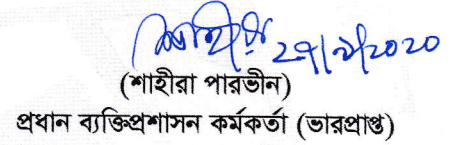 (শাহীরা পারভীন)
প্রধান ব্যক্তিপ্রশাসন কর্মকর্তা (ভারপ্রাপ্ত)